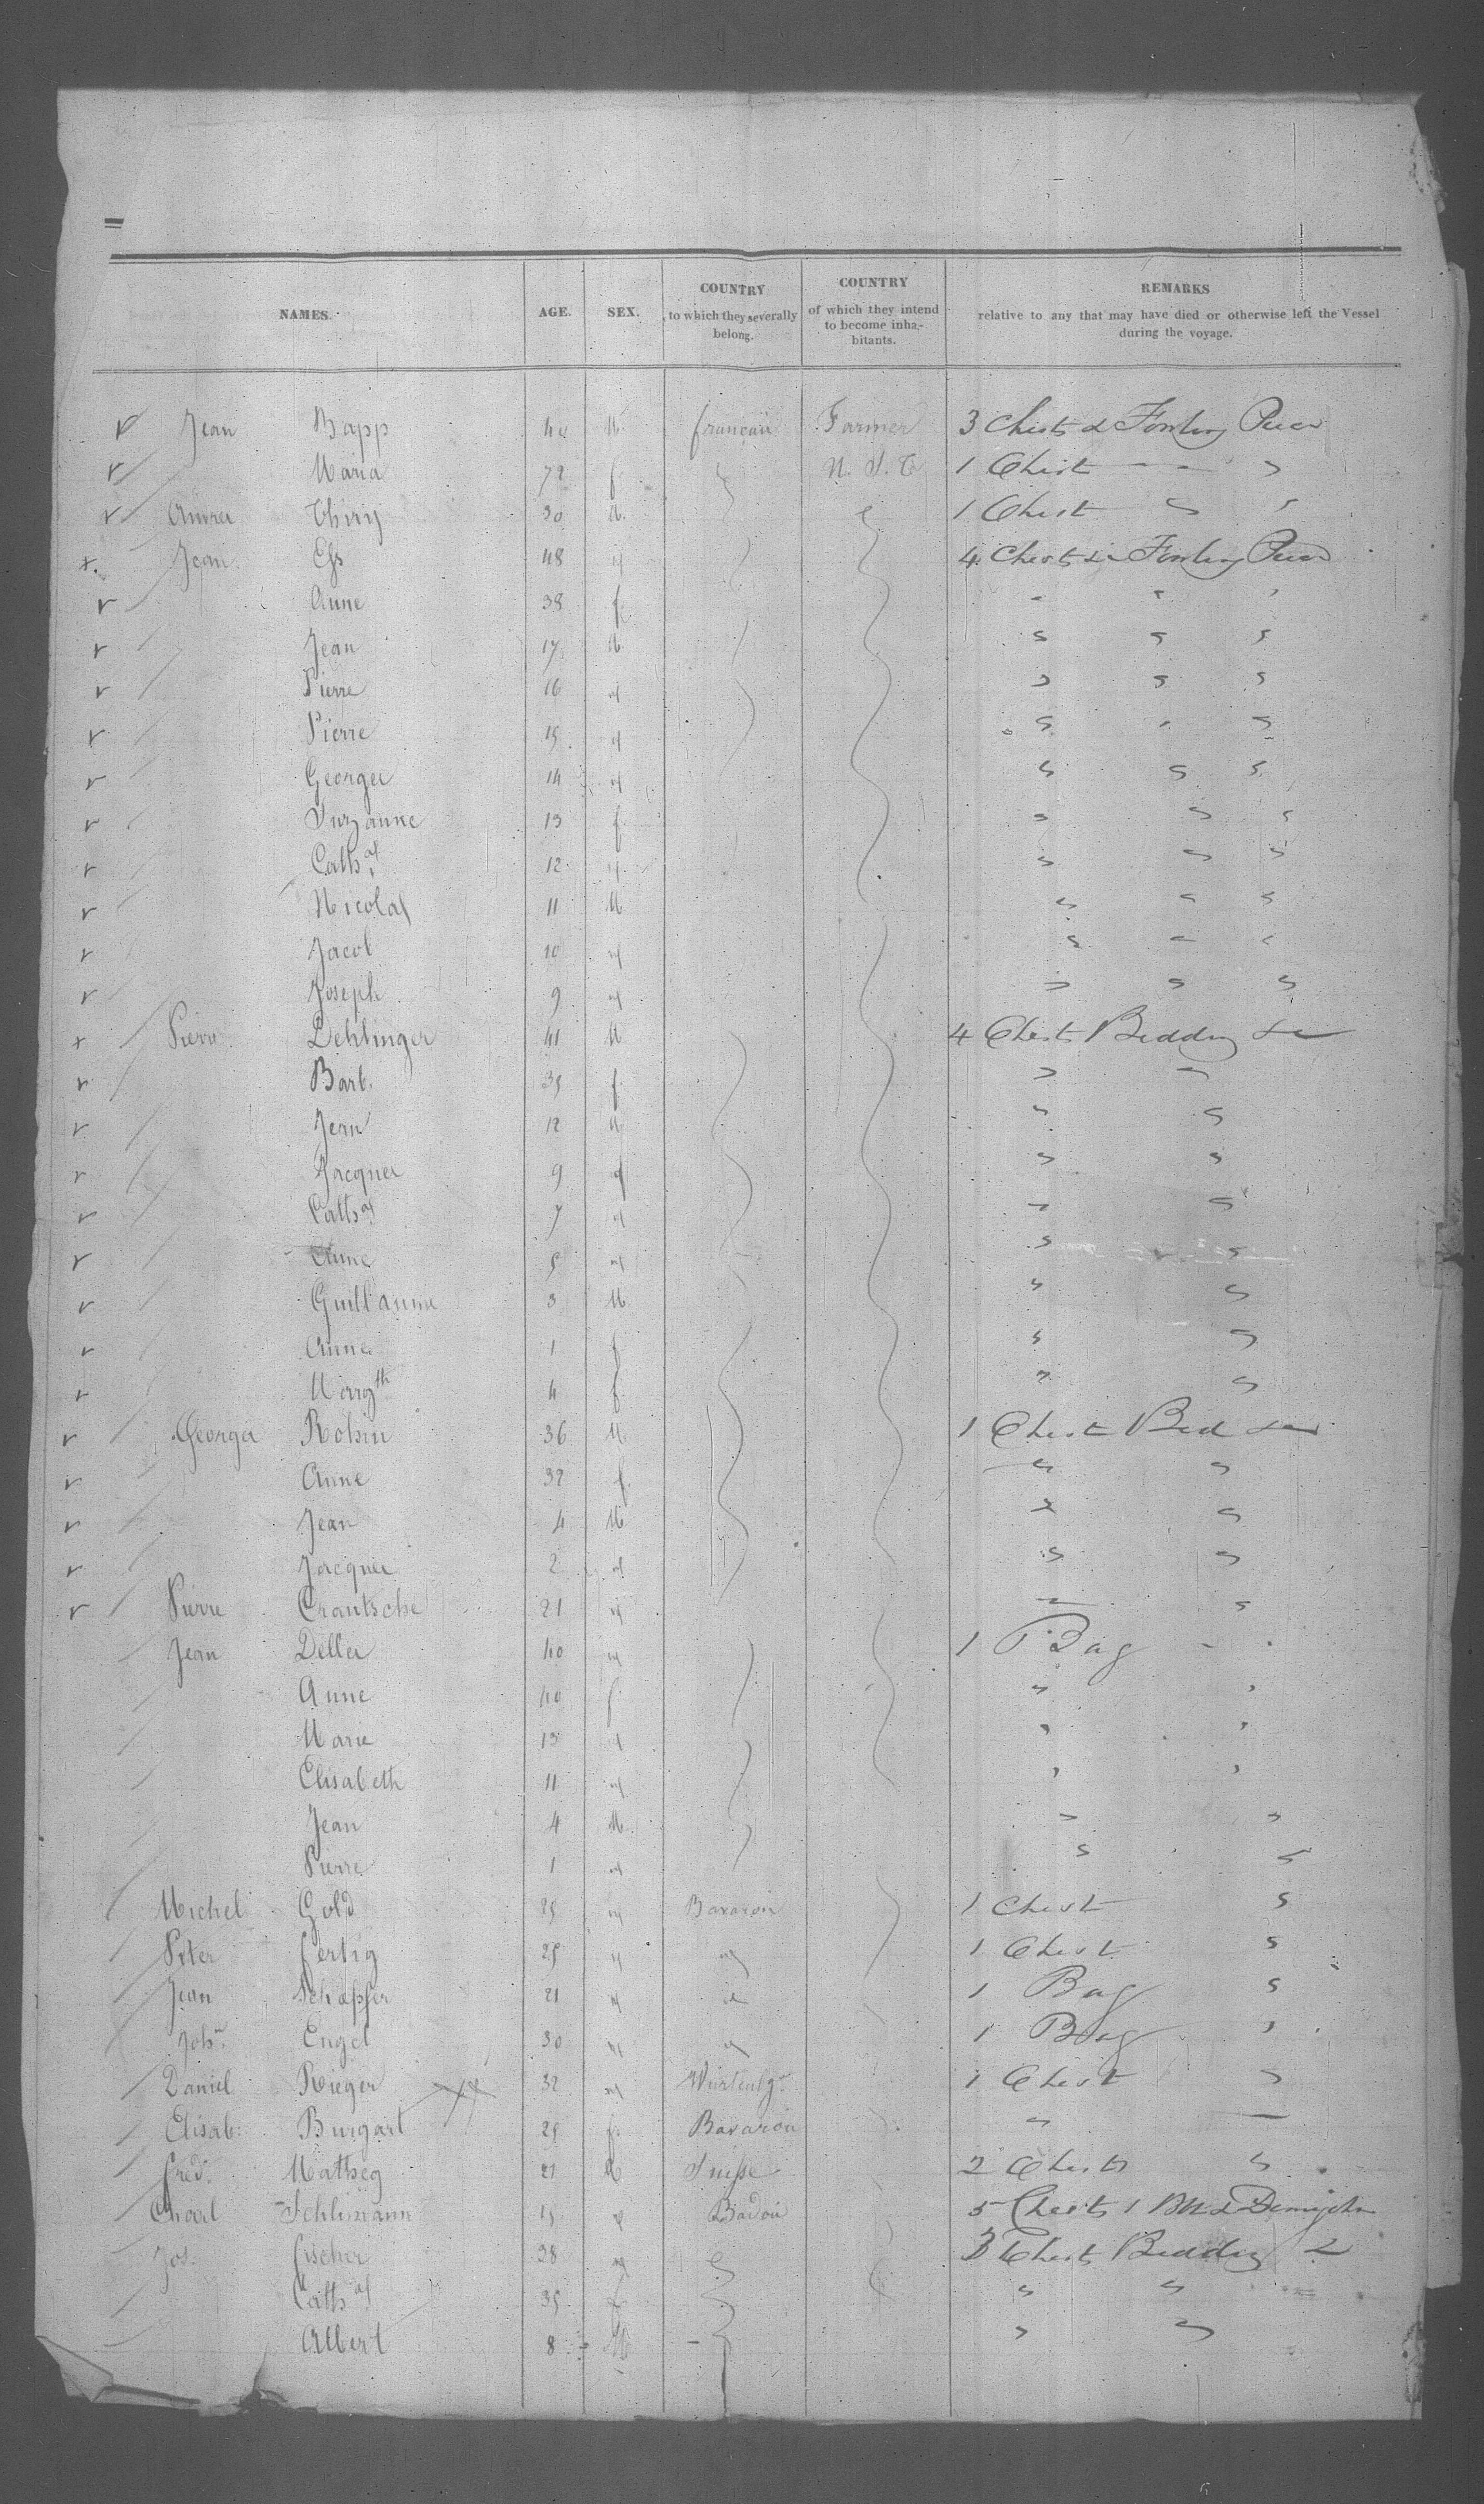 NAMES. AGE. SEX. COUNTRY to which they severally belong. COUNTRY of which they intend to become inha-bitants. REMARKS relative to any that may have died or otherwise left the Vessel during the voyage.
Jean Bapp 40 M. francais Farmer 3 Chests & Fowling Piece
Maria 72 f 1 Chest
Thiry 30 M. 1 Chest
Jean Ess 48 " 4 Chests & Fowling Piece
Anne 38 f
Jean 17 M
Pierre 16 "
Pierre 15 "
George 14 "
Suzanne 13 f
Cath 12 "
Nicolas 11 M
Jacob 10 "
Joseph 9 "
Pierre Dehlinger 41 M 4 Chests Bedding &c
Barb. 35 f
Jean 12 M
Jacques 9 "
Cath 7 "
Anne 5 "
Guillaume 3 M
Anne 1 f
Margth 4 f
George Robin 36 M 1 Chest Bed &c
Anne 32 f
Jean 4 M
Jacques 2 "
Pierre Crantsche 21 "
Jean Deller 40 " 1 Bag
Anne 40 f
Marie 13 "
Elisabeth 11 "
Jean 4 M
Pierre 1 "
Michel Gold 25 " Bavaroin 1 Chest
Peter fertig 25 " " 1 Chest
Jean Schaffer 21 " " 1 Bag
Joh. Engel 30 " " 1 Bag
Daniel Rieger 32 " Würtenbg 1 Chest
Elisab: Burgart 25 f. Bavaroin "
fred. Matheg 21 M Suisse 2 Chests
Schlimann 15 " Badois 5 Chests 1 & Demijohn
Jos. fischer 38 " 3 Chests Bedding &
Cath 35 f
Albert 8 M